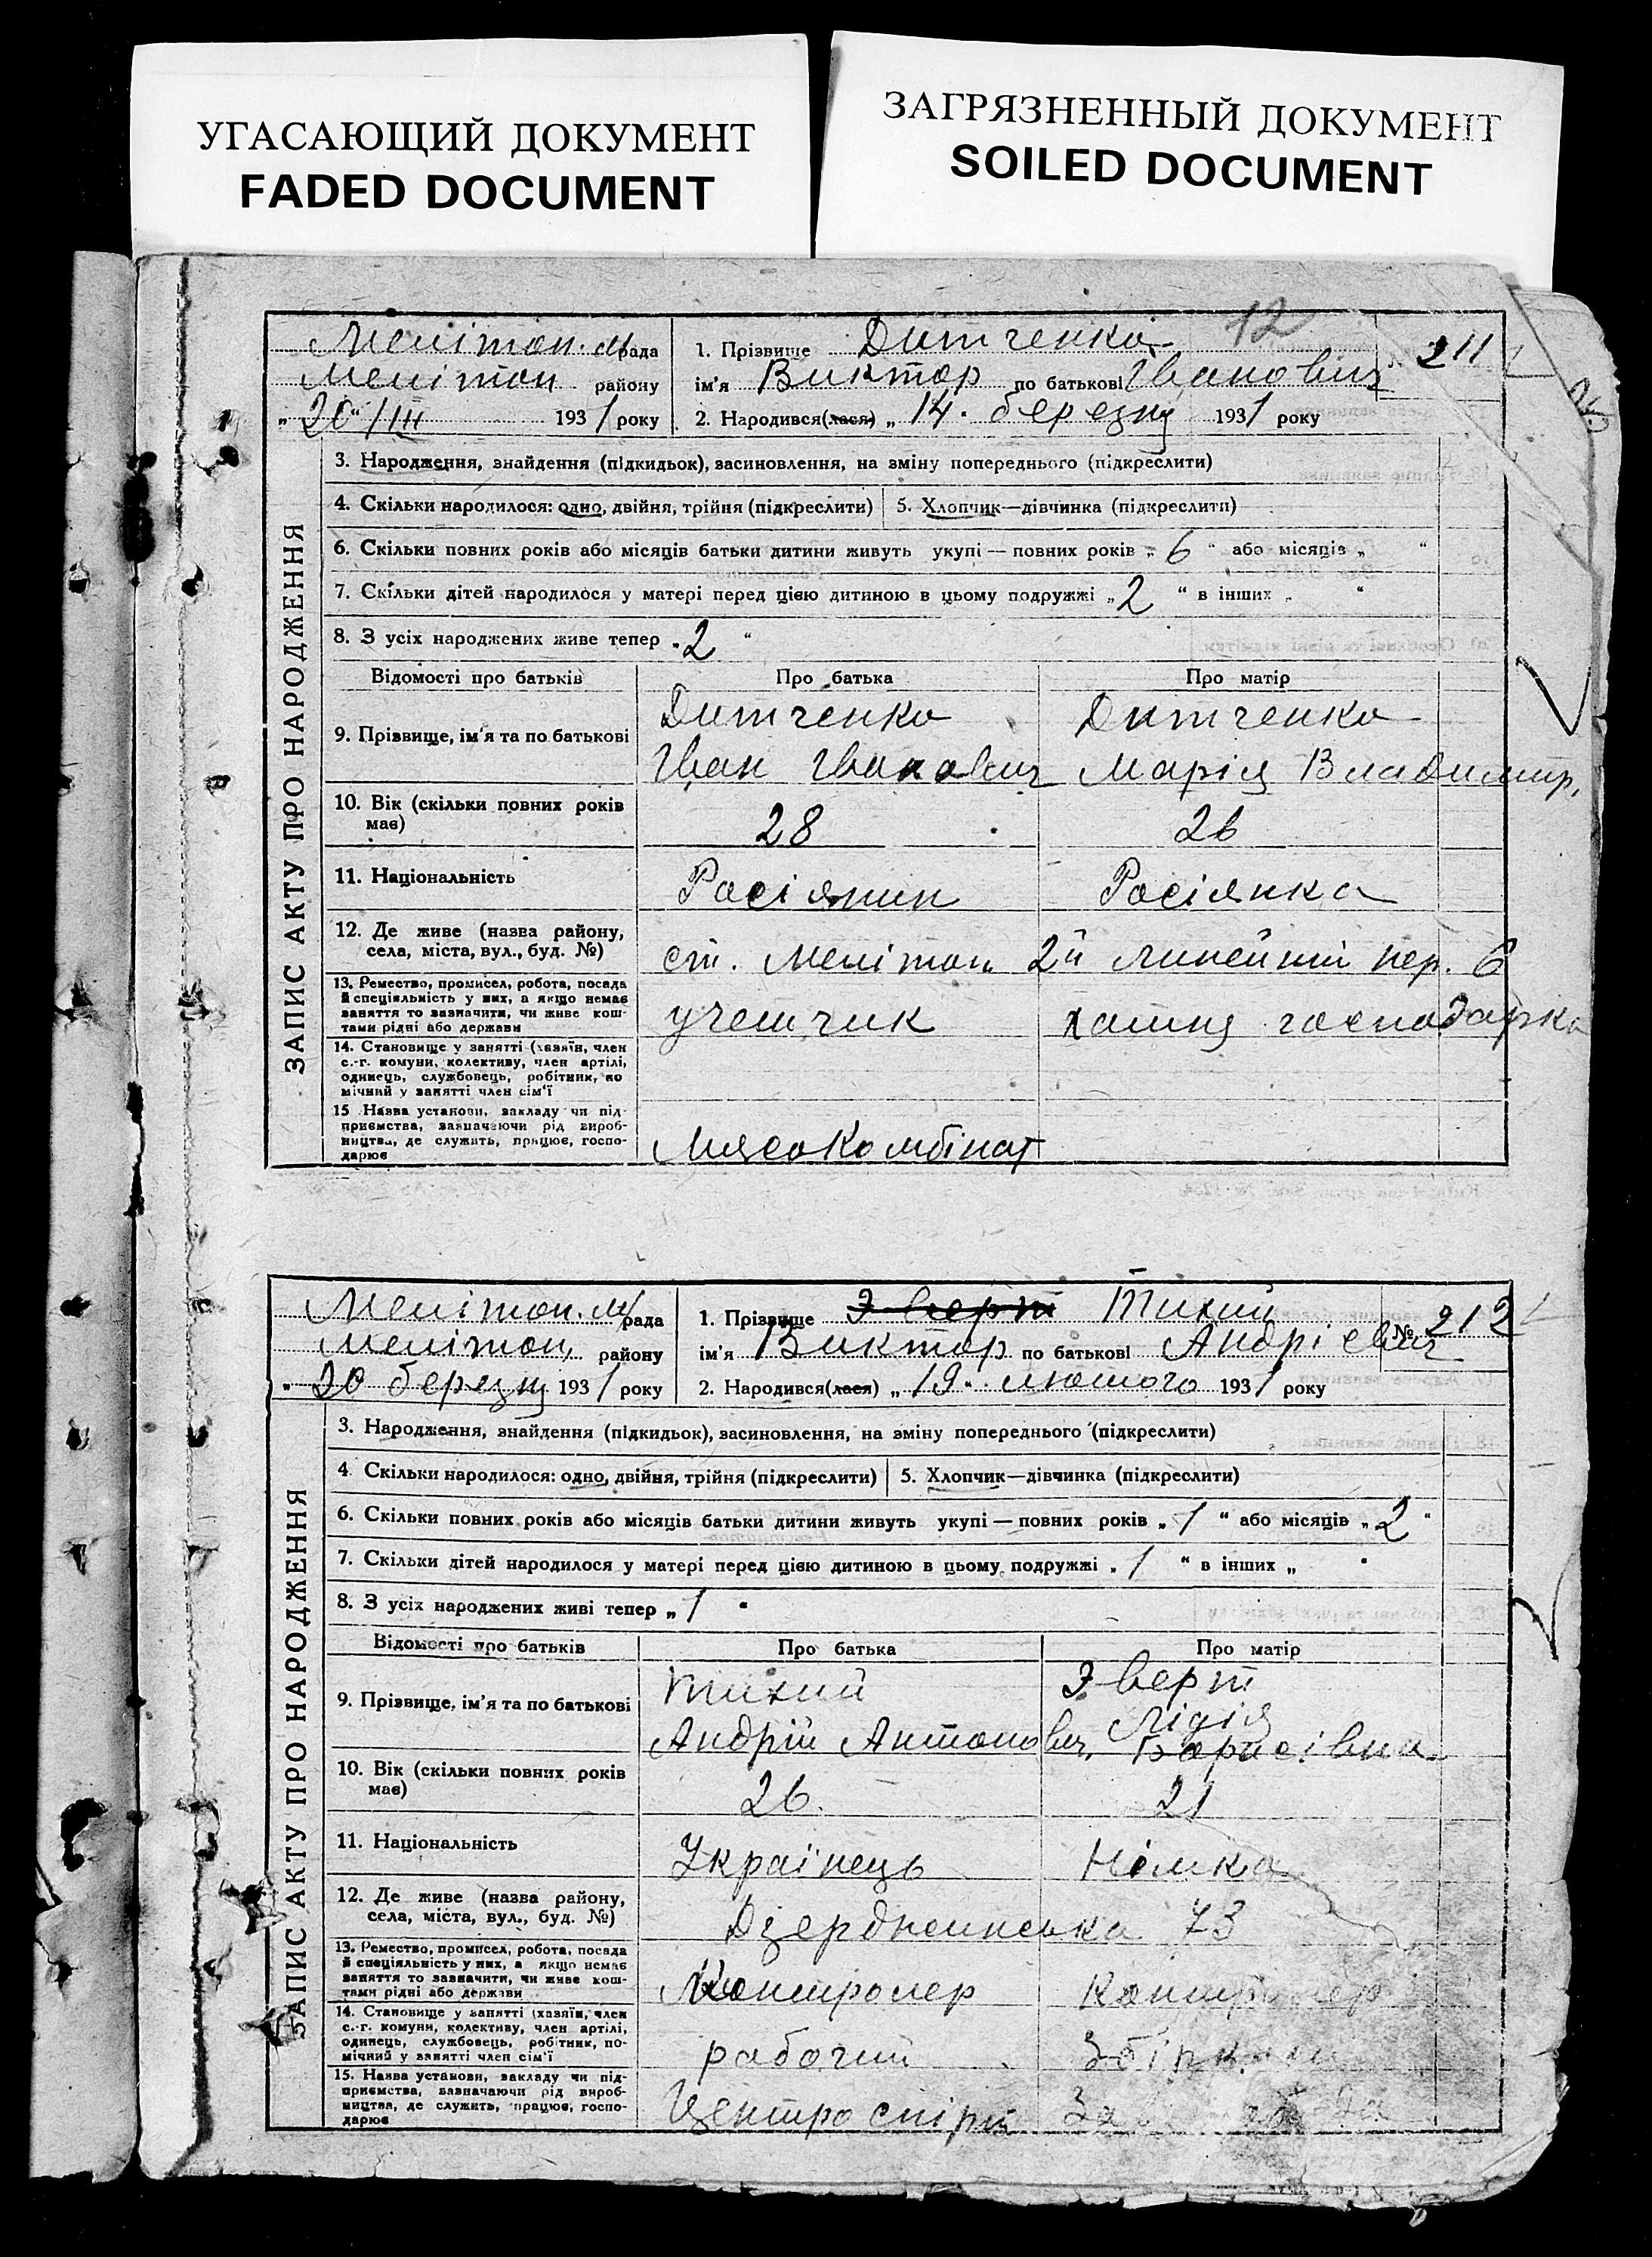 УГАСАЮЩИЙ ДОКУМЕНТ
FADED DOCUMENT
ЗАГРЯЗНЕННЫЙ ДОКУМЕНТ
SOILED DOCUMENT
12
Мелітоп. м/рада
Мелітоп району
„20“/III 1931 року
1. Прізвище Дитченко
№ 211
ім'я Виктор по батькові Іванович
2. Народився(лася) „14. березня 1931 року
ЗАПИС АКТУ ПРО НАРОДЖЕННЯ
3. Народження, знайдення (підкидьок), засиновлення, на зміну попереднього (підкреслити)
4. Скільки народилося: одно, двійня, трійня (підкреслити)
5. Хлопчик—дівчинка (підкреслити)
6. Скільки повних років або місяців батьки дитини живуть укупі — повних років „ 6 “ або місяців „ “
7. Скільки дітей народилося у матері перед цією дитиною в цьому подружжі „ 2 “ в інших „ “
8. З усіх народжених живе тепер „ 2 “
Відомості про батьків Про батька Про матір
9. Прізвище, ім'я та по батькові
Дитченко
Іван Іванович
Дитченко
Марія Владимир.
10. Вік (скільки повних років
має)
28 26
11. Національність
Росіянин Росіянка
12. Де живе (назва району,
села, міста, вул., буд. №)
ст. Мелітоп. 2й линейний пер. 6
13. Ремество, промисел, робота, посада
й спеціяльність у них, а якщо немає
заняття то зазначити, чи живе кош-
тами рідні або держави
учетчик хатня господарка
14. Становище у занятті (хазяїн, член
с.-г. комуни, колективу, член артілі,
одинець, службовець, робітник, по
мічний у занятті член сім'ї
15 Назва установи, закладу чи під-
приємства, зазначаючи рід вироб-
ництва, де служить, працює, госпо-
дарює
Мясокомбінат
Мелітоп. м/рада
Мелітоп, району
„ 20 березня 1931 року
1. Прізвище Эверт Тихий
№ 212
ім'я Виктор по батькові Андрієвич
2. Народився(лася) „19. лютого 1931 року
ЗАПИС АКТУ ПРО НАРОДЖЕННЯ
3. Народження, знайдення (підкидьок), засиновлення, на зміну попереднього (підкреслити)
4. Скільки народилося: одно, двійня, трійня (підкреслити)
5. Хлопчик—дівчинка (підкреслити)
6. Скільки повних років або місяців батьки дитини живуть укупі — повних років „ 1 “ або місяців „ 2 “
7. Скільки дітей народилося у матері перед цією дитиною в цьому подружжі „ 1 “ в інших „ “
8. З усіх народжених живі тепер „ 1 “
Відомості про батьків Про батька Про матір
9. Прізвище, ім'я та по батькові
Тихий
Андрій Антонович.
Эверт
Лідія
Борисівна.
10. Вік (скільки повних років
має)
26. 21
11. Національність
Українець Німка
12. Де живе (назва району,
села, міста, вул., буд. №)
Дзержинська 73
13. Ремество, промисел, робота, посада
й спеціяльність у них, а якщо немає
заняття то зазначити, чи живе кош-
тами рідні або держави
Контролер Контролер
14. Становище у занятті (хазяїн, член
с.-г. комуни, колективу, член артілі,
одинець, службовець, робітник, по-
мічний у занятті член сім'ї
рабочий
15. Назва установи, закладу чи під-
приємства, зазначаючи рід вироб-
ництва, де служить, працює, госпо-
дарює
Центроспірт